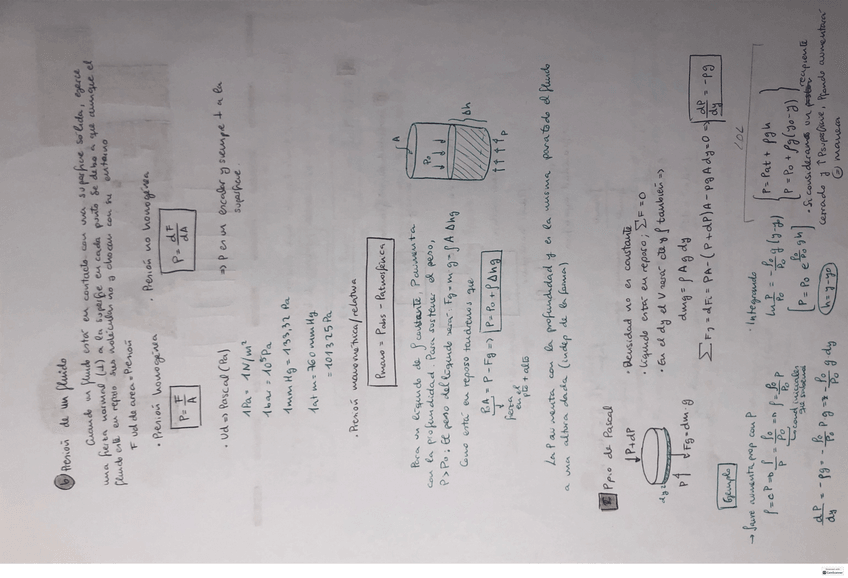 b) Presión de un fluido
Cuando un fluido está en contacto con una superficie sólida, ejerce
una fuerza normal (⊥) a la superficie en cada punto. Se debe a que aunque el
fluido esté en reposo sus moléculas no y chocan con su entorno
F ud de area = Presión
· Presión homogénea
P = F/A
· Presión no homogénea
P = dF/dA
· Ud ⇒ Pascal (Pa) ⇒ P es un escalar y siempre ⊥ a la
superficie.
1Pa = 1N/m²
1bar = 10⁵Pa
1mmHg = 133,32 Pa
1atm = 760 mmHg
= 101325 Pa
· Presión manométrica/relativa
Pmano = Pabs - Patmosférica
Para un líquido de ρ constante, P aumenta
con la profundidad. Para sustentar el peso,
P > P₀; El peso del líquido será: Fg = m·g = ρ A Δhg
Como está en reposo tendremos que
P₀A = P - Fg ⇒ P = P₀ + ρΔhg
fuerza
en el
pto + alto
A
P₀
Δh
P
La P aumenta con la profundidad y es la misma para todo el fluido
a una altura dada (indep de la forma)
Ppio de Pascal
P+dP
dy
P
Fg = dm·g
· Densidad no es constante
· Líquido está en reposo; ΣF=0
· En dy el V será dV y ρ también ⇒
dmg = ρ A g dy
ΣFy = dFi = PA - (P+dP)A - ρgAdy = 0 ⇒ dP/dy = -ρg
Ejemplo
→ ρaire aumenta prop con P
ρ = cP ⇒ ρ/P = ρ₀/P₀ ⇒ ρ = ρ₀/P₀ P
dP/dy = -ρg = -ρ₀/P₀ Pg ⇒ ρ₀/P₀ g dy
· Integrando
ln P/P₀ = -ρ₀/P₀ g (y-y₀)
h = y-y₀
P = Pat + ρgh
P = P₀ + ρg(y₀-y)
· Si consideramos un recipiente
cerrado y ↑Psuperfície, Pfondo aumentará
= manera